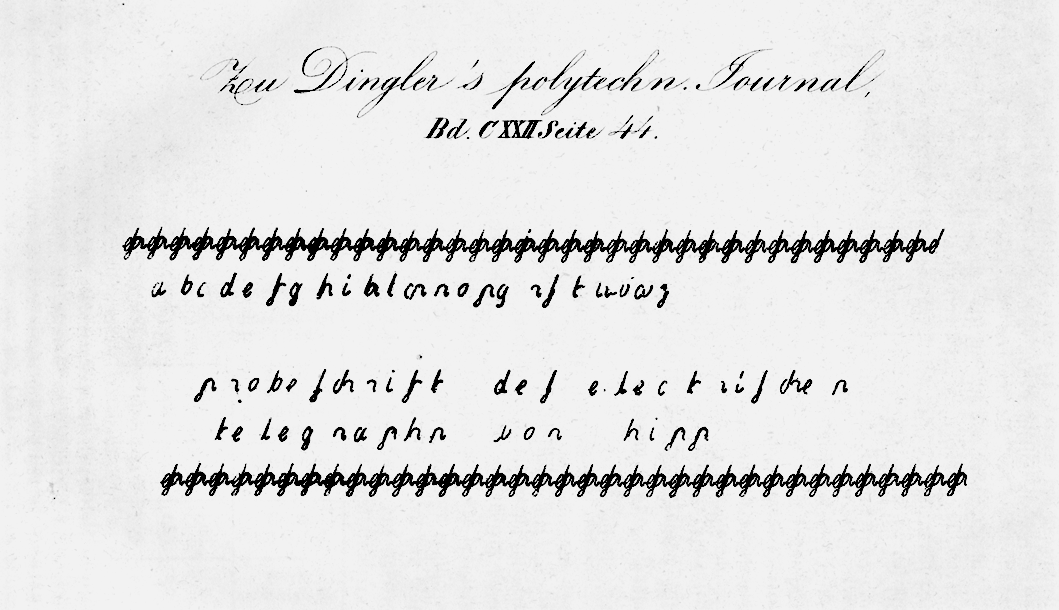 Zu Dingler's polytechn. Journal,
Bd. CXXII Seite 44.
a b c d e f g h i k l m n o p q r s t u v w z
probe schrift des electrischen
telegraphn von hipp